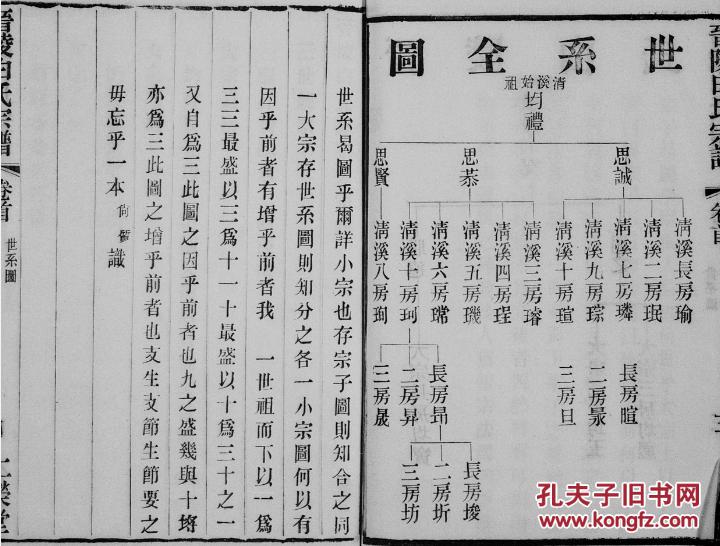 世系全圖
清溪始祖
均禮
思誠
思恭
思賢
清溪長房瑜
清溪二房珉
清溪七房璘
清溪九房琮
清溪十房瑄
清溪三房璿
清溪四房珵
清溪五房璣
清溪六房瑺
清溪十房珂
清溪八房珣
長房暄
二房
三房旦
長房昻
二房昇
三房晟
長房埈
二房圻
三房坊
世系曷圖乎爾詳小宗也存宗子圖則知合之同
一大宗存世系圖則知分之各一小宗圖何以有
因乎前者有增乎前者我 一世祖而下以一爲
三三最盛以三爲十一十最盛以十爲三十之一
又自爲三此圖之因乎前者也九之盛幾與十埒
亦爲三此圖之增乎前者也支生支節生節要之
毋忘乎一本 識
晉陵白氏宗譜
卷首
世系圖
孔夫子旧书网
www.kongfz.com